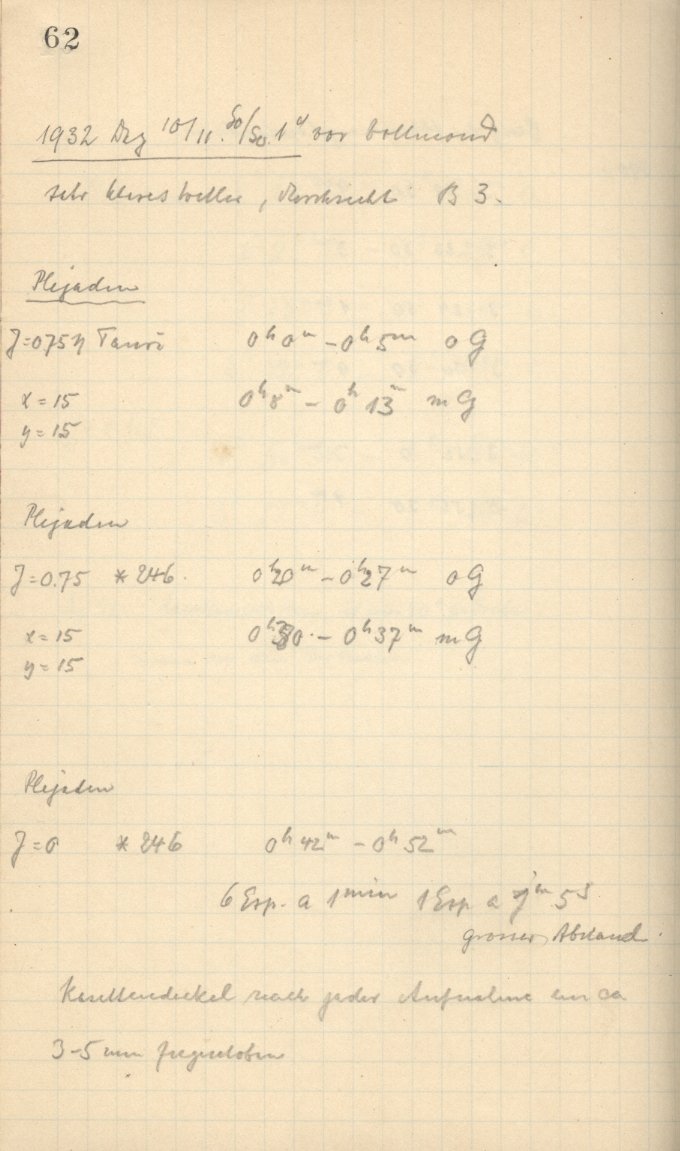 62
1932 Dez 10/11. So/So. 1d vor Vollmond
sehr klares Wetter, Durchsicht B 3.
Plejaden
J=075 η Tauri 0h0m – 0h5m oG
x = 15 0h8m – 0h13m mG
y = 15
Plejaden
J=0.75 * 246. 0h20m – 0h27m oG
x = 15 0h30 – 0h37m mG
y = 15
Plejaden
J=0 * 246 0h42m – 0h52m
6 Exp. a 1min 1 Exp a 5s
grosser Abstand.
Kassettendeckel nach jeder Aufnahme um ca
3-5 mm zugeschoben